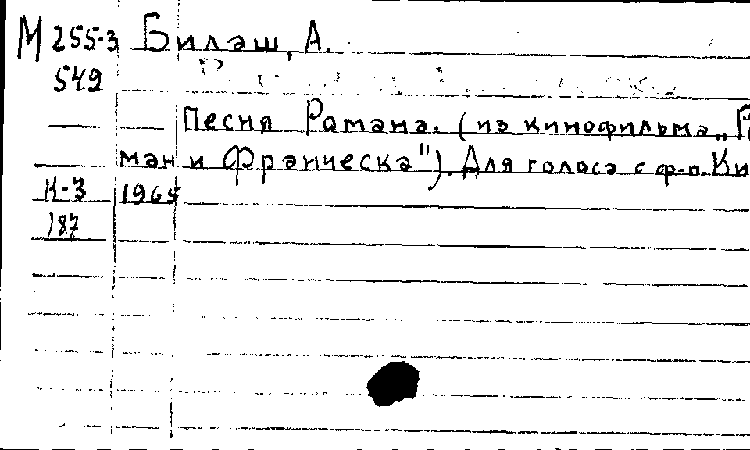 М 255-3 Билаш, А.
549
Песня Романа. (из кинофильма „Р
ман и Франческа"). Для голоса с ф-п. Ки
К-3 1965
187